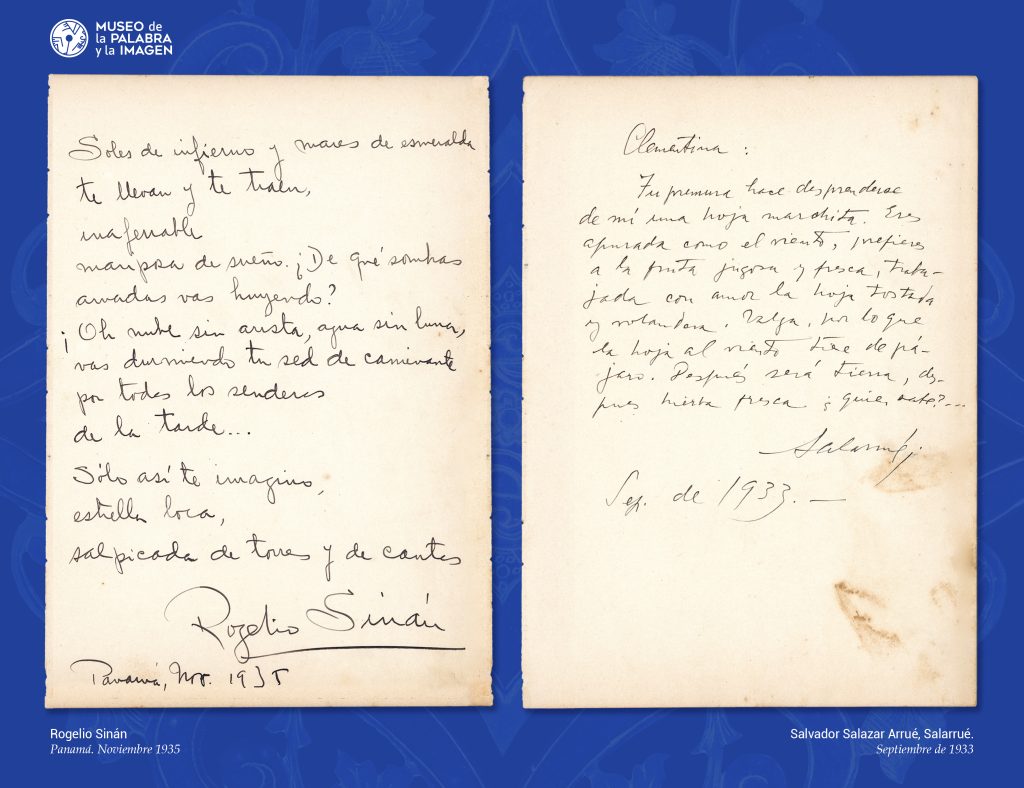 MUSEO de
la PALABRA
y la IMAGEN
Soles de infierno y mares de esmeralda
te llevan y te traen,
inaferrable
mariposa de sueño. ¿De qué sombras
amadas vas huyendo?
¡Oh nube sin arista, agua sin luna,
vas durmiendo tu sed de caminante
por todos los senderos
de la tarde...
Sólo así te imagino,
estrella loca,
salpicada de torres y de cantos
Rogelio Sinán
Panamá, Nov. 1935
Clementina:
Tu premura hace desprenderse
de mí una hoja marchita. Eres
apurada como el viento, prefieres
a la fruta jugosa y fresca, traba-
jada con amor la hoja tostada
y volandera. Valga, por lo que
la hoja al viento tiene de pá-
jaro. Después será tierra, des-
pues hierba fresca ¿quién sabe?...
Salarrué
Sep. de 1933. —
Rogelio Sinán
Panamá. Noviembre 1935
Salvador Salazar Arrué, Salarrué.
Septiembre de 1933